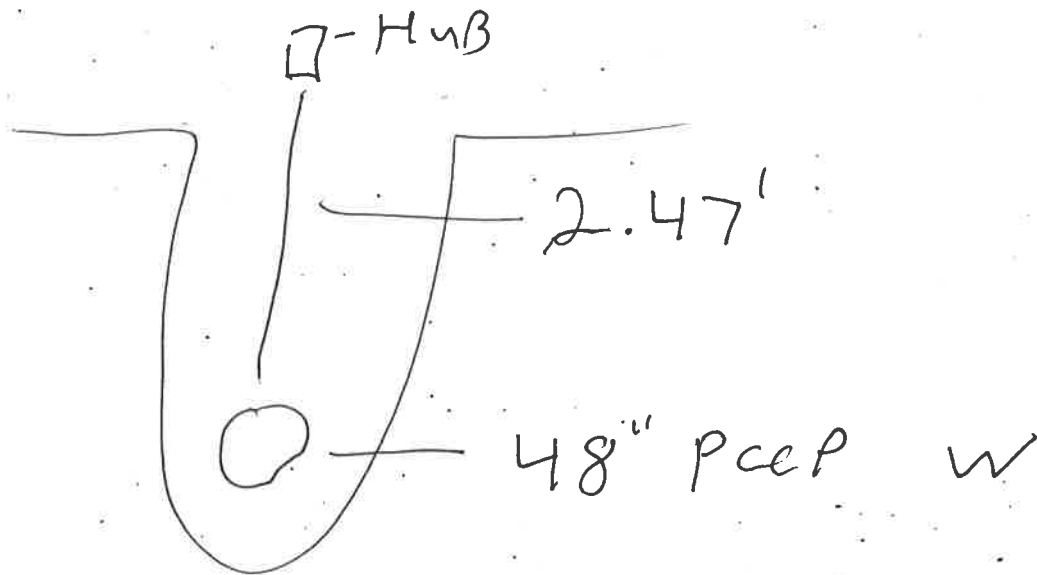 - HuB
2.47'
48" PCCP W